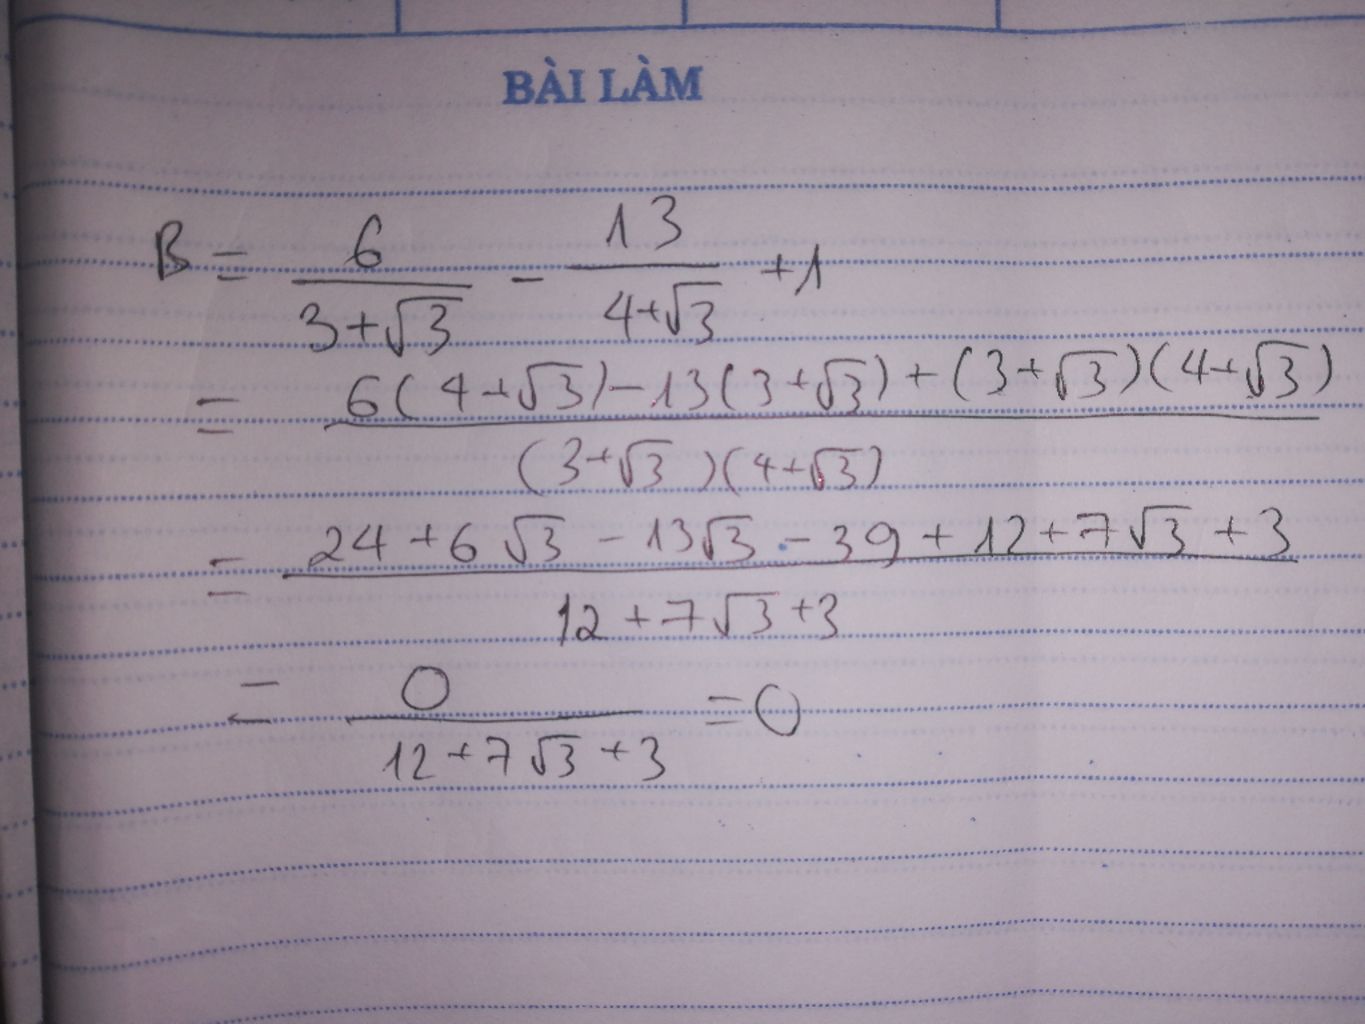 BÀI LÀM
B = 6/(3+√3) - 13/(4+√3) +1
= (6(4+√3)-13(3+√3)+(3+√3)(4+√3))/((3+√3)(4+√3))
= (24+6√3-13√3-39+12+7√3+3)/(12+7√3+3)
= 0/(12+7√3+3) = 0